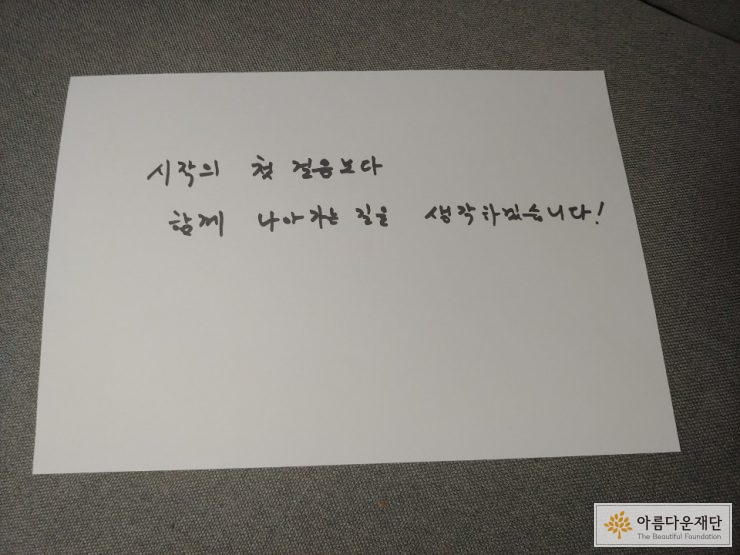 시작의 첫 걸음보다
함께 나아가는 길을 생각하겠습니다!
아름다운재단
The Beautiful Foundation